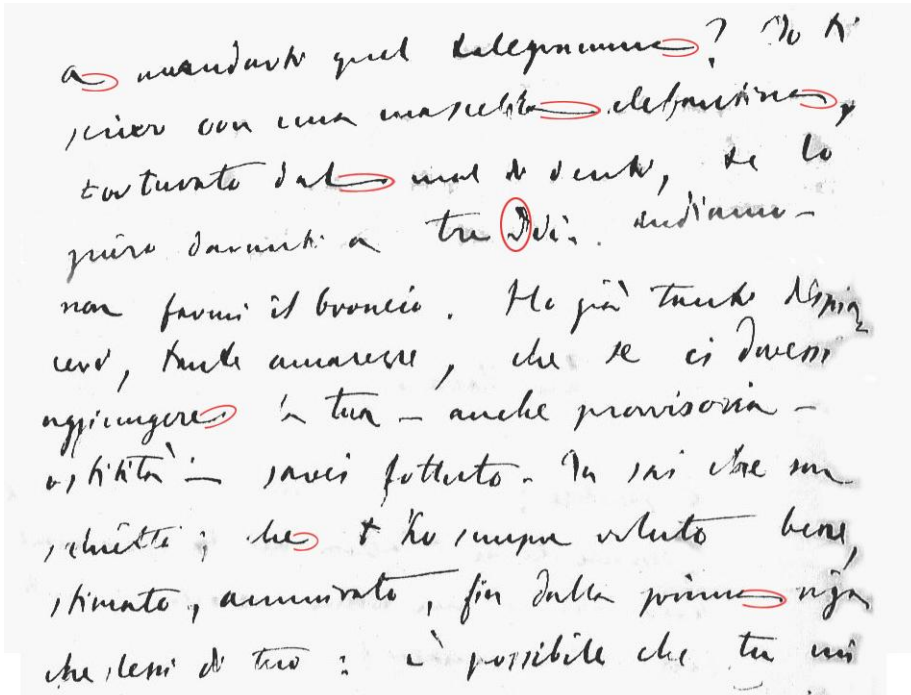 a mandarti quel telegramma? Io ti
scrivo con una mascella elefantina,
torturato dal mal di denti, se lo
giuro davanti a tre Dei. andiamo -
non farmi il broncio. Ho già tanti dispia
ceri, tante amarezze, che se ci dovessi
aggiungere la tua - anche provvisoria -
ostilità - sarei fottuto. Tu sai che son
schietto; che t'ho sempre voluto bene,
stimato, ammirato, fin dalla prima riga
che lessi di tuo: è possibile che tu mi